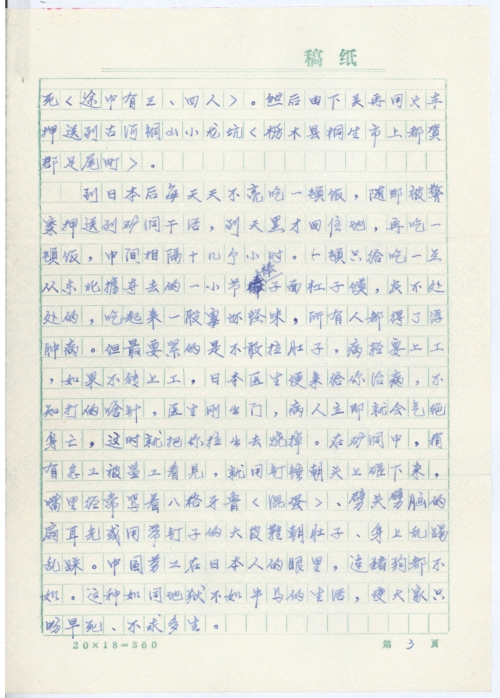 稿纸
死《途中有三、四人》。然后由下关再用火车
押送到古河铜山小龙坑《栃木县桐生市上都贺
郡足尾町》。
到日本后每天天不亮吃一顿饭，随即被警
察押送到矿洞干活，到天黑才回住地，再吃一
顿饭，中间相隔十几个小时。一顿只给吃一点
从东北携来去的一小节棒子面杠子馍，灰不处
处的，吃起来一股霉坏怪味，所有人都得了浮
肿病。但最要紧的是不敢拉肚子，病轻要上工
，如果不能上工，日本医生便来给你治病，不
知打的啥针，医生刚出门，病人立即就会气绝
身亡，这时就把你拉出去烧掉。在矿洞中，稍
有怠工被监工看见，就用钉锤朝头上砸下来，
嘴里经常骂着八格牙鲁《混蛋》、劈头劈脑的
扇耳光或用带钉子的大皮鞋朝肚子、身上乱踢
乱踩。中国劳工在日本人的眼里，连猪狗都不
如。这种如同地狱不如牛马的生活，使大家只
盼早死、不求多生。
20×18=360
第 3 页